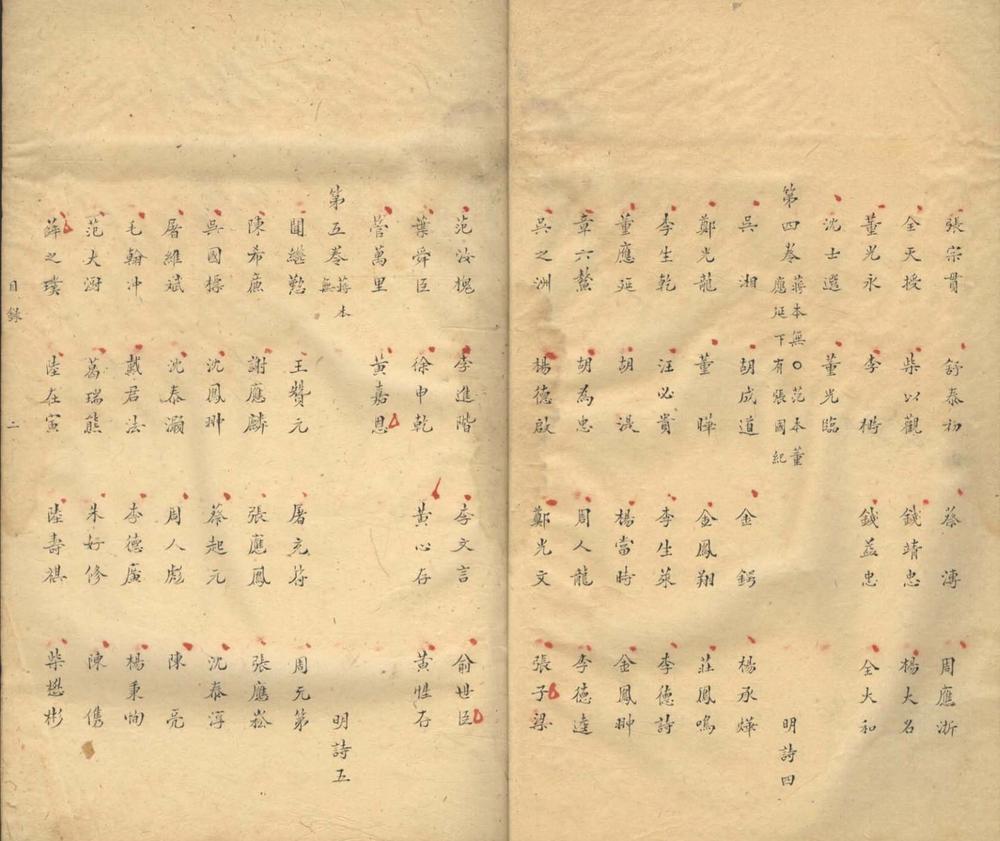 張宗貫 舒泰初 蔡漙 周應浙
全天授 柴以觀 錢靖忠 楊大名
董光永 李 錢益忠 全大和
沈士選 董光臨
第四卷 蔣本無〇范本董應延下有張國紀 明詩四
吳湘 胡成道 金鍔 楊承燁
鄭光龍 董曄 金鳳翔 莊鳳鳴
李生乾 汪必貴 李生萊 李德詩
董應延 胡湜 楊當時 金鳳翀
章六鰲 胡為忠 周人龍 李德達
吳之洲 楊德啟 鄭光文 張子梁
范汝槐 李進階 李文言 俞世臣
葉舜臣 徐申乾 黃心存 黃性存
管萬里 黃嘉恩
第五卷 蔣本無 明詩五
聞繼懃 王贊元 屠充符 周元第
陳希廉 謝應麟 張應鳳 張應崧
吳國標 沈鳳翀 蔡起元 沈泰淳
屠維斌 沈泰灝 周人彪 陳亮
毛翰冲 戴君法 李德廣 楊秉恂
范大澍 葛瑞熊 朱好修 陳儁
薛之璞 陸在寅 陸壽祺 柴懋彬
目錄 二